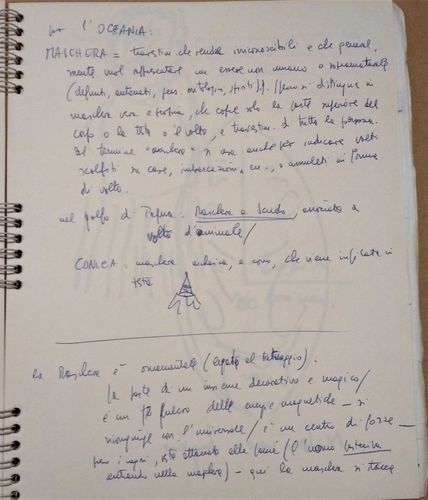 per l'OCEANIA.
MASCHERA = travestim. che rende irriconoscibili e che general
mente vuol rappresentare un essere non umano o soprannaturale
(defunti, antenati, pers. mitologici, spiriti). si distingue in
maschera vera e propria, che copre solo la parte superiore del
corpo o la testa o il volto, e travestim. di tutta la persona.
Il termine "maschera" si usa anche per indicare volti
scolpiti su case, imbarcazioni, ecc., o amuleti in forma
di volto.
nel golfo di Papua. Maschera a scudo, a
volto d'animale/
CONICA. maschera, a cono, che viene infilata in
testa
La Maschera è ornamentale (legata al tatuaggio).
fa parte di un insieme decorativo e magico/
è un fulcro delle energie magnetiche - si
ricongiunge con l'universale / è un centro di forze -
per i negri, sta attorno alle (l'uomo
entrando nella maschera) - qui la maschera si stacca